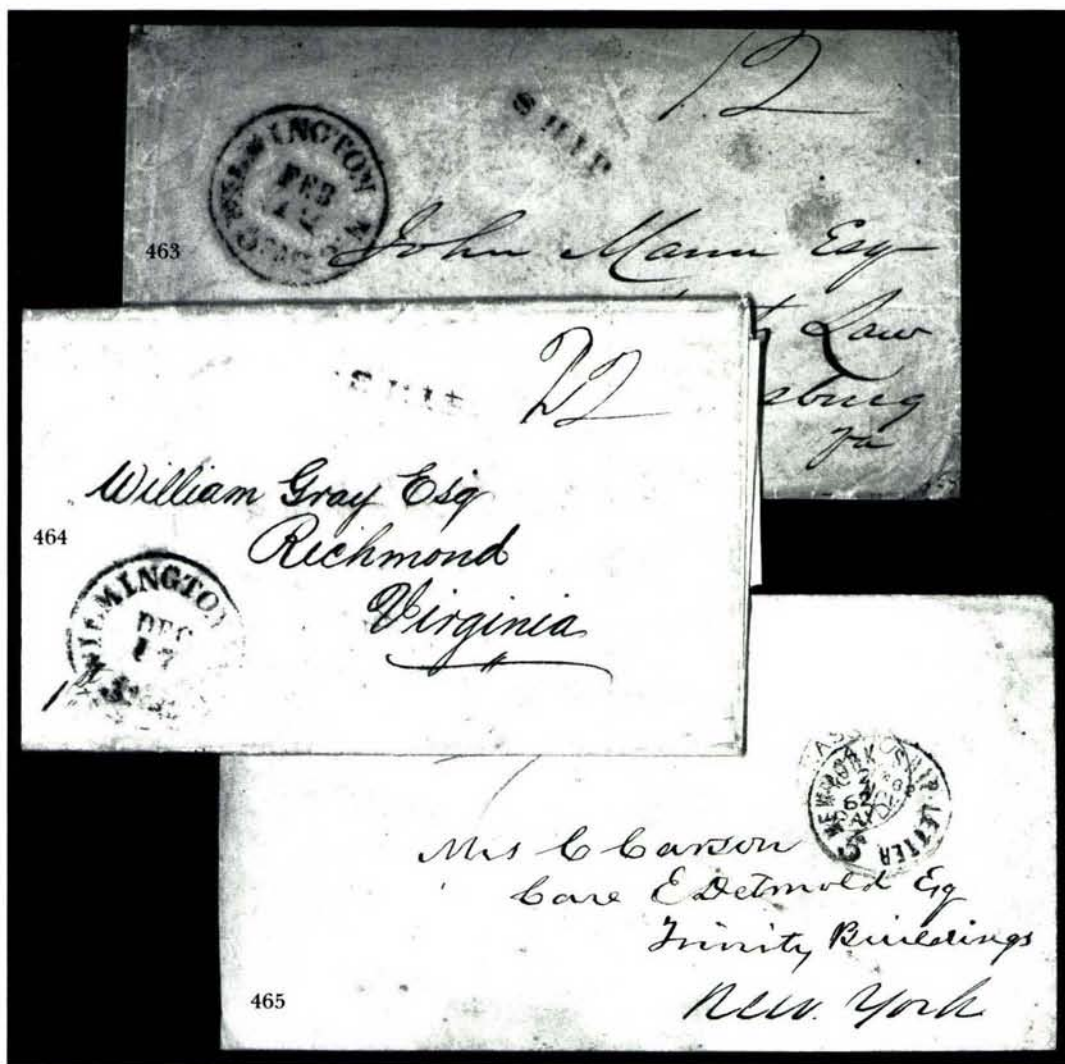 12
SHIP
WILMINGTON N.C.
FEB
John Mann Esq
Law
sburg
463
22
SHIP
William Gray Esq
Richmond
Virginia
464
WILMINGTON
DEC
17
NASSAU
NEW YORK SHIP LETTER
62
Mrs C Carson
Care E Detmold Esq
Trinity Buildings
New. York
465